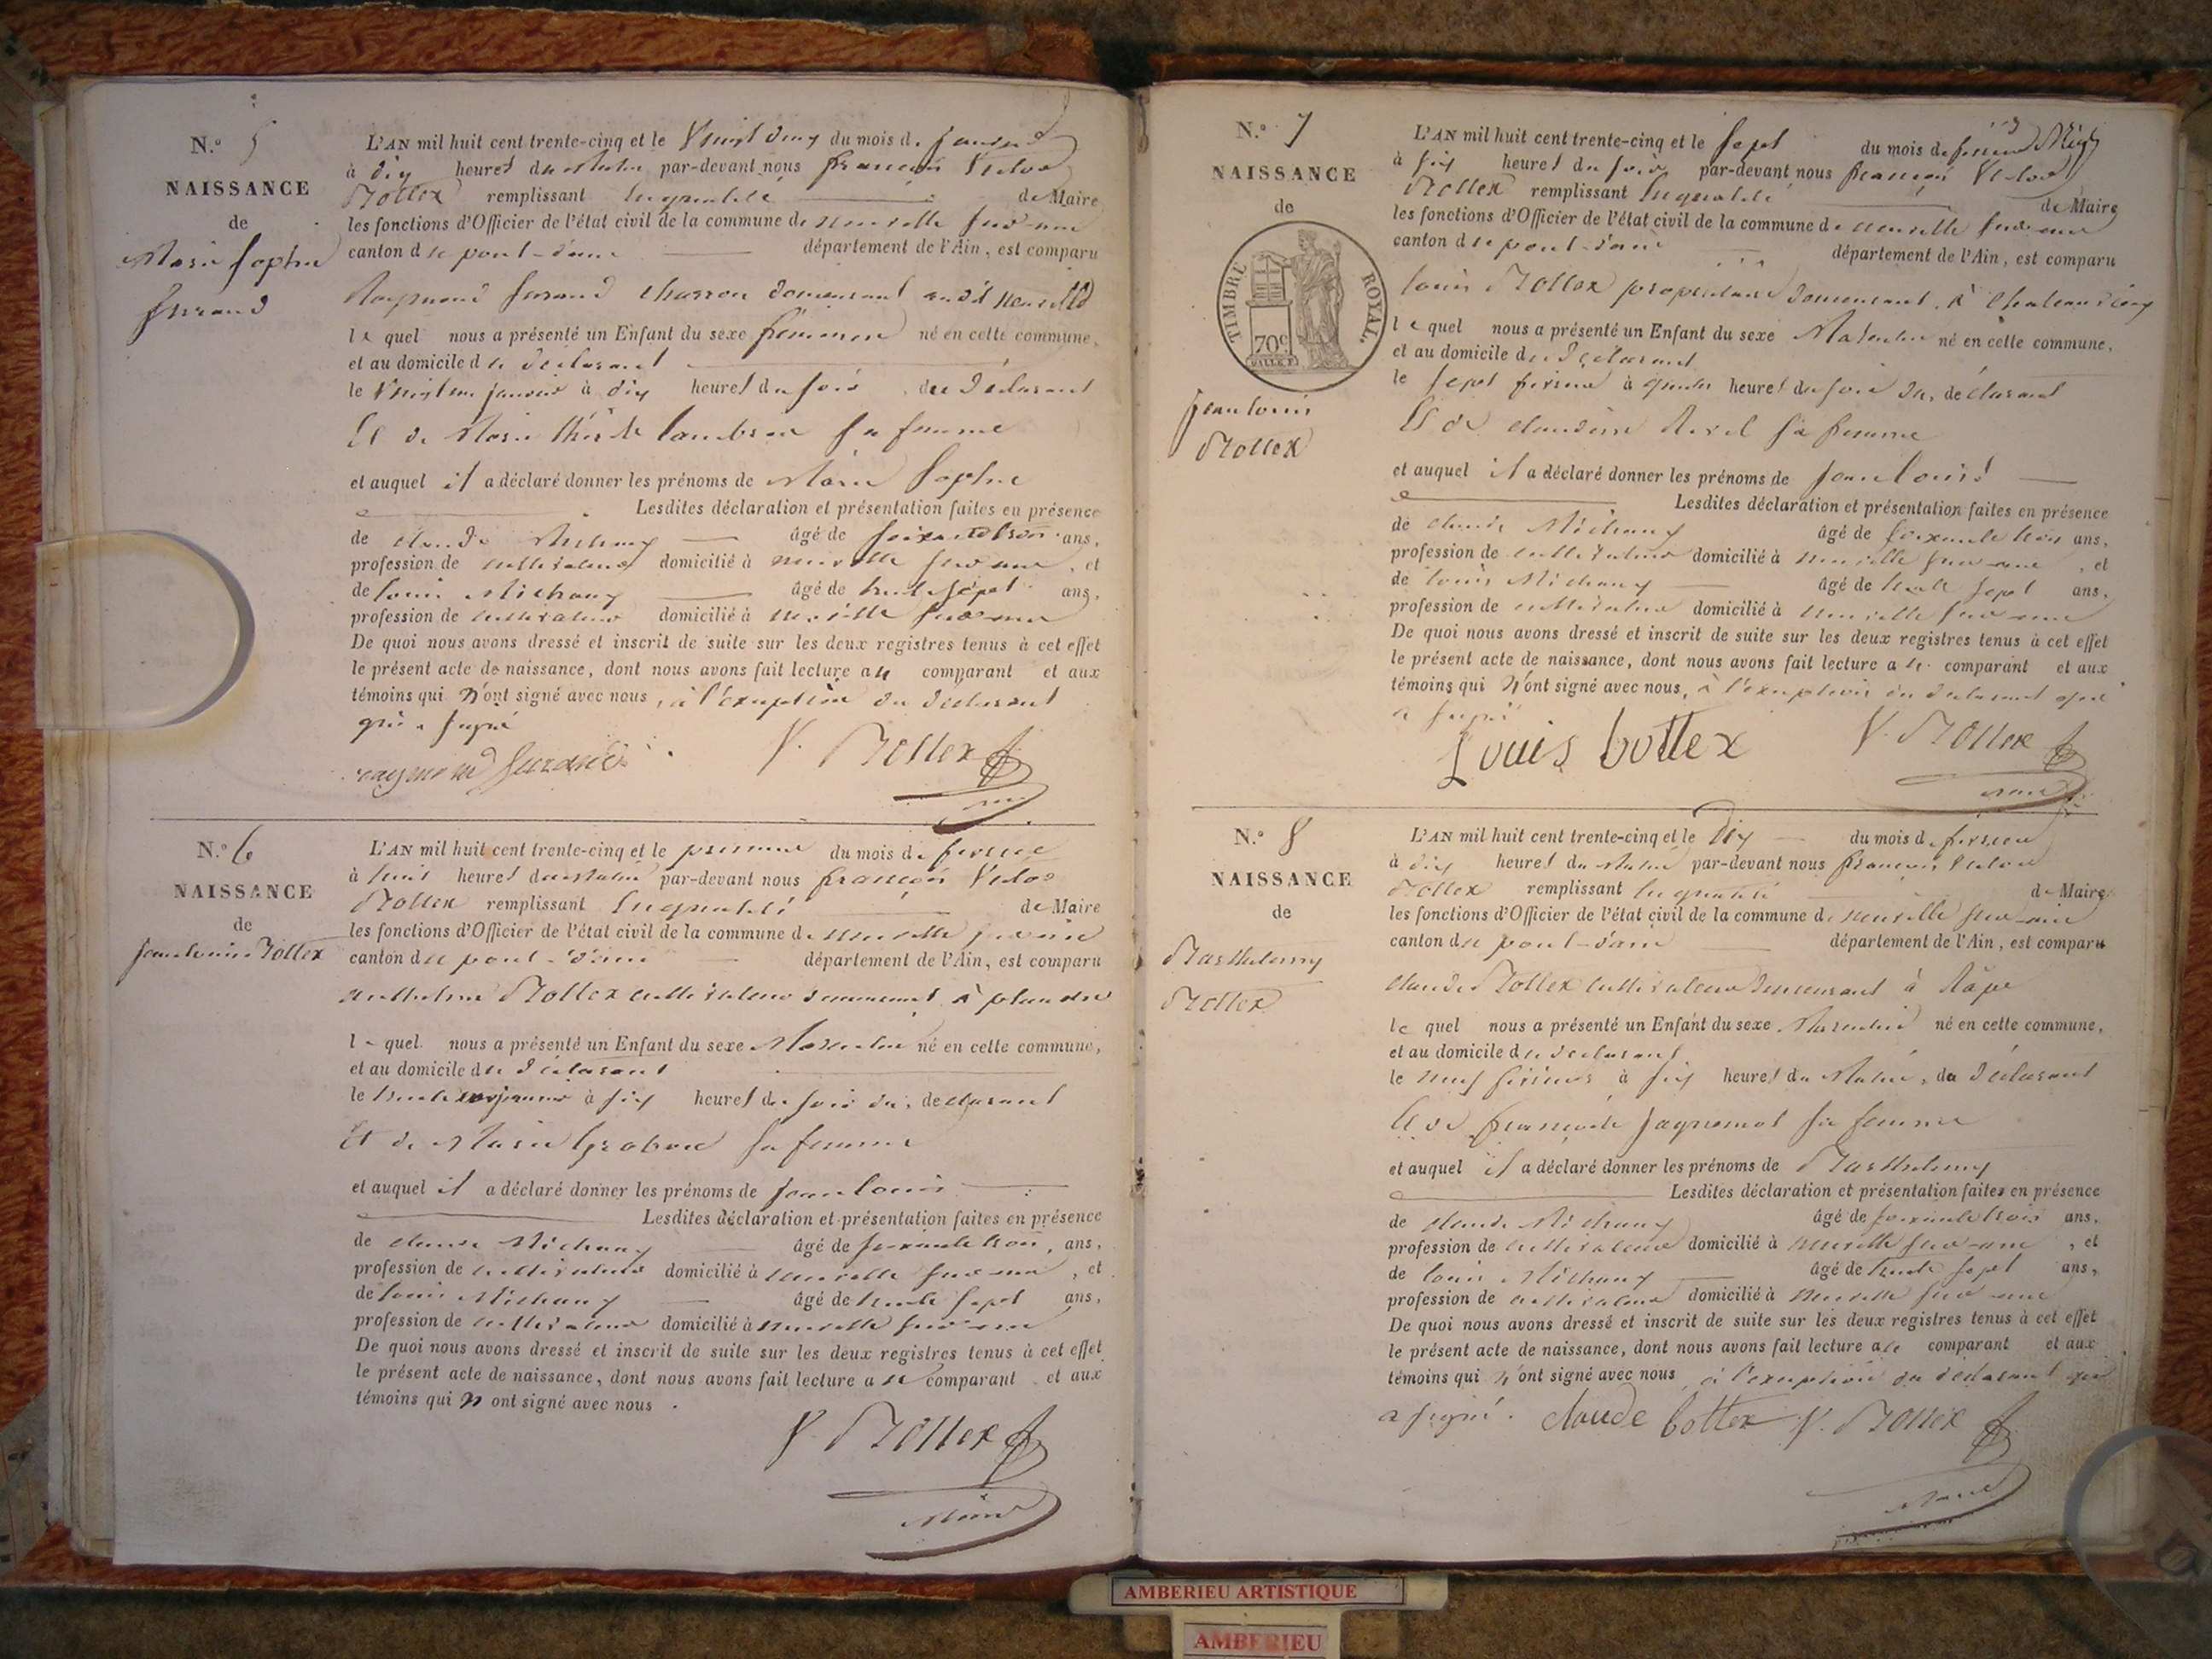 N.° 5
NAISSANCE
de
Marie Sophie
L'AN mil huit cent trente-cinq et le Vingt deux du mois de janvier
à dix heures du Matin par-devant nous françois Victor
Bottex remplissant En qualité de Maire
les fonctions d'Officier de l'état civil de la commune de neuville sur ain
canton de pont-d'ain département de l'Ain, est comparu
Raymond charron demeurant audit neuville
le quel nous a présenté un Enfant du sexe féminin né en cette commune,
et au domicile du déclarant
le Vingt un janvier à dix heures du soir du déclarant
Et de Marie sa femme
et auquel il a déclaré donner les prénoms de Marie Sophie
Lesdites déclaration et présentation faites en présence
de claude Michaux âgé de soixante trois ans,
profession de cultivateur domicilié à neuville sur ain, et
de louis Michaux âgé de trente sept ans,
profession de cultivateur domicilié à neuville sur ain
De quoi nous avons dressé et inscrit de suite sur les deux registres tenus à cet effet
le présent acte de naissance, dont nous avons fait lecture au comparant et aux
témoins qui n'ont signé avec nous, à l'exception du déclarant
qui a signé
V. Bottex
N.° 6
NAISSANCE
de
jean louis Bottex
L'AN mil huit cent trente-cinq et le premier du mois de fevrier
à huit heures du matin par-devant nous françois Victor
Bottex remplissant En qualité de Maire
les fonctions d'Officier de l'état civil de la commune de neuville sur ain
canton de pont-d'ain département de l'Ain, est comparu
anthelme Bottex cultivateur demeurant à planche
le quel nous a présenté un Enfant du sexe Masculin né en cette commune,
et au domicile du déclarant
le janvier à six heures du soir du déclarant
Et de Marie sa femme
et auquel il a déclaré donner les prénoms de jean louis
Lesdites déclaration et présentation faites en présence
de claude Michaux âgé de soixante trois ans,
profession de cultivateur domicilié à neuville sur ain, et
de louis Michaux âgé de trente sept ans,
profession de cultivateur domicilié à neuville sur ain
De quoi nous avons dressé et inscrit de suite sur les deux registres tenus à cet effet
le présent acte de naissance, dont nous avons fait lecture au comparant et aux
témoins qui n ont signé avec nous.
V. Bottex
Maire
N.° 7
NAISSANCE
de
TIMBRE ROYAL.
70c
jean louis
Bottex
L'AN mil huit cent trente-cinq et le sept du mois de fevrier
à six heures du soir par-devant nous françois Victor
Bottex remplissant En qualité de Maire
les fonctions d'Officier de l'état civil de la commune de neuville sur ain
canton de pont-d'ain département de l'Ain, est comparu
louis Bottex propriétaire demeurant à
le quel nous a présenté un Enfant du sexe Masculin né en cette commune,
et au domicile du déclarant
le sept fevrier à quatre heures du soir du déclarant
Et de claudine sa femme
et auquel il a déclaré donner les prénoms de jean louis
Lesdites déclaration et présentation faites en présence
de claude Michaux âgé de soixante trois ans,
profession de cultivateur domicilié à neuville sur ain, et
de louis Michaux âgé de trente sept ans,
profession de cultivateur domicilié à neuville sur ain
De quoi nous avons dressé et inscrit de suite sur les deux registres tenus à cet effet
le présent acte de naissance, dont nous avons fait lecture au comparant et aux
témoins qui n'ont signé avec nous, à l'exception du déclarant qui
a signé
Louis bottex V. Bottex
N.° 8
NAISSANCE
de
Barthelemy
Bottex
L'AN mil huit cent trente-cinq et le dix du mois de fevrier
à dix heures du Matin par-devant nous françois Victor
Bottex remplissant En qualité de Maire
les fonctions d'Officier de l'état civil de la commune de neuville sur ain
canton de pont-d'ain département de l'Ain, est comparu
claude Bottex cultivateur demeurant à Râpe
le quel nous a présenté un Enfant du sexe Masculin né en cette commune,
et au domicile du déclarant
le neuf fevrier à six heures du Matin, du déclarant
Et de françoise sa femme
et auquel il a déclaré donner les prénoms de Barthelemy
Lesdites déclaration et présentation faites en présence
de claude Michaux âgé de soixante trois ans,
profession de cultivateur domicilié à neuville sur ain, et
de louis Michaux âgé de trente sept ans,
profession de cultivateur domicilié à neuville sur ain
De quoi nous avons dressé et inscrit de suite sur les deux registres tenus à cet effet
le présent acte de naissance, dont nous avons fait lecture au comparant et aux
témoins qui n'ont signé avec nous à l'exception du déclarant qui
a signé. claude bottex V. Bottex
Maire
AMBERIEU ARTISTIQUE
AMBERIEU